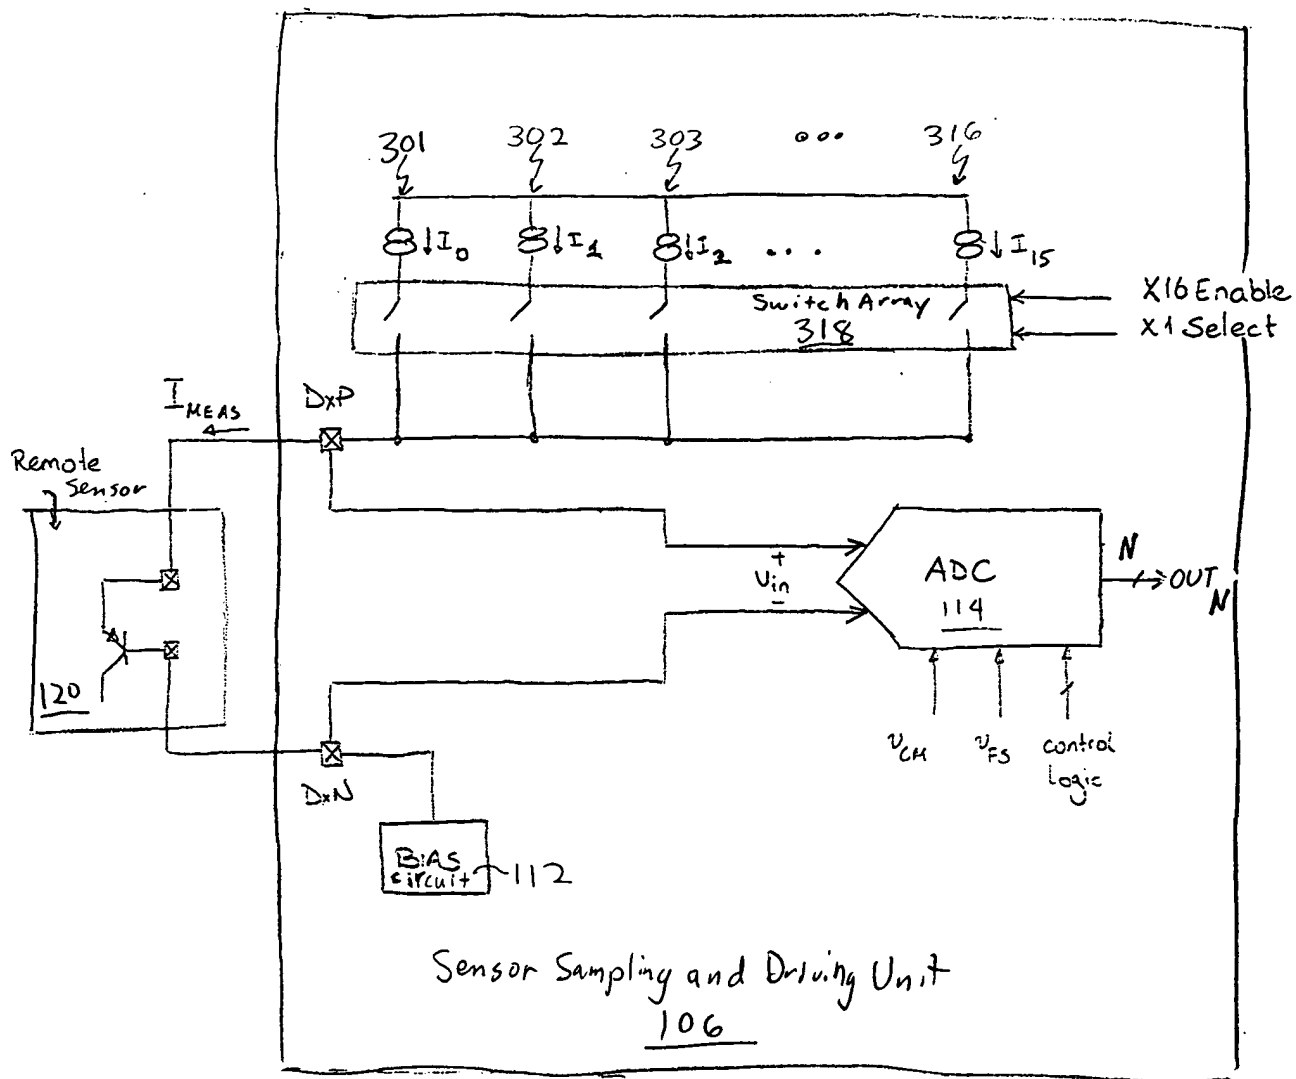 301 302 303 ••• 316
↓I0 ↓I1 ↓I2 ... ↓I15
Switch Array
318
X16 Enable
X1 Select
IMEAS
DxP
Remote
Sensor
120
+
Vin
–
ADC
114
N
OUTN
VCM
VFS
control
logic
DxN
BIAS
circuit
112
Sensor Sampling and Driving Unit
106